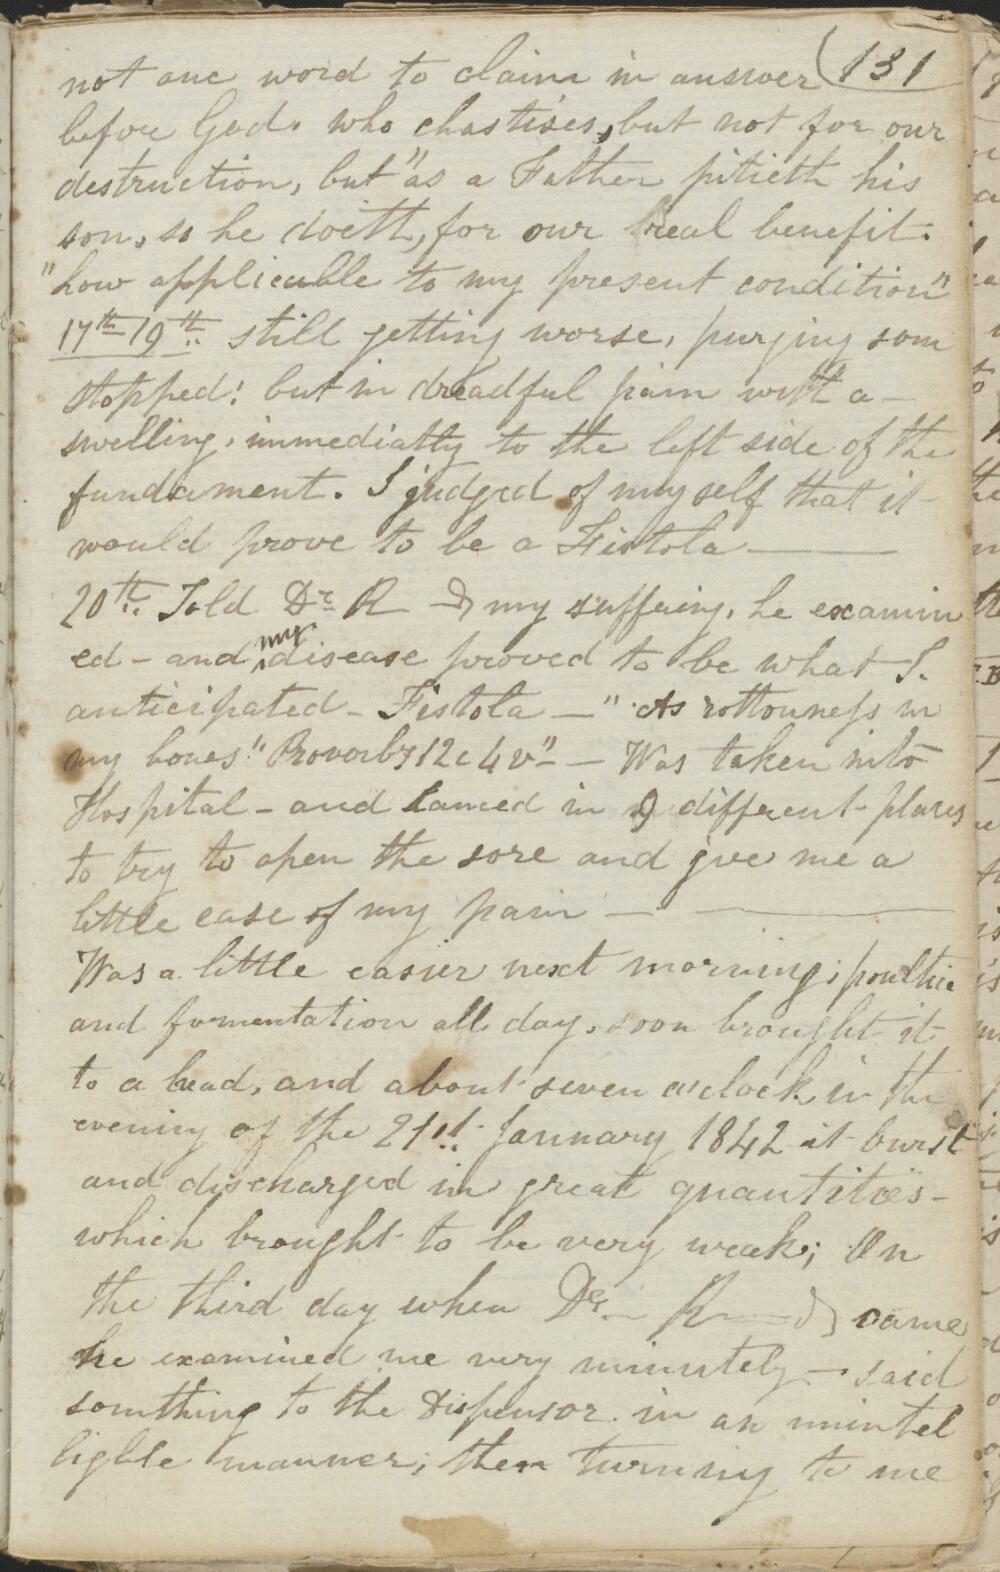 not one word to claim in answer (131
before God. who chastises, but not for our
destruction, but "as a Father pitieth his
son, so he doeth, for our real benefit.
"how applicable to my present condition"
17th 19th still getting worse, purging som
stopped: but in dreadful pain with a -
swelling, immediatly to the left side of the
fundament. I judged of my self that it
would prove to be a Fistola ———
20th Told Dr R— d my suffering, he examin
ed - and my disease proved to be what I.
anticipated - Fistola — " As rottonness in
my bones" Proverbs 12c 4v" - — Was taken into
Hospital - and lanced in 9 different places
to try to open the sore and give me a
little ease of my pain — ———
Was a little easier next morning; poultice
and formentation all day, soon brought it
to a head, and about seven o'clock in the
evening of the 21st January 1842 it burst
and discharged in great quantities -
which brought to be very weak; On
the third day when Dr. R——d came
he examined me very minutely — said
somthing to the Dispensor in an unintel
ligble manner; then turning to me